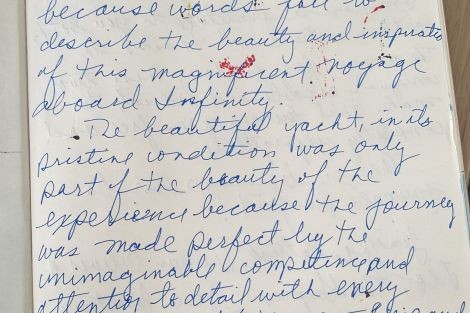 because words fail to
describe the beauty and inspiration
of this magnificent voyage
aboard Infinity.
The beautiful yacht, in its
pristine condition was only
part of the beauty of the
experience because the journey
was made perfect by the
unimaginable competence and
attention to detail with every
and